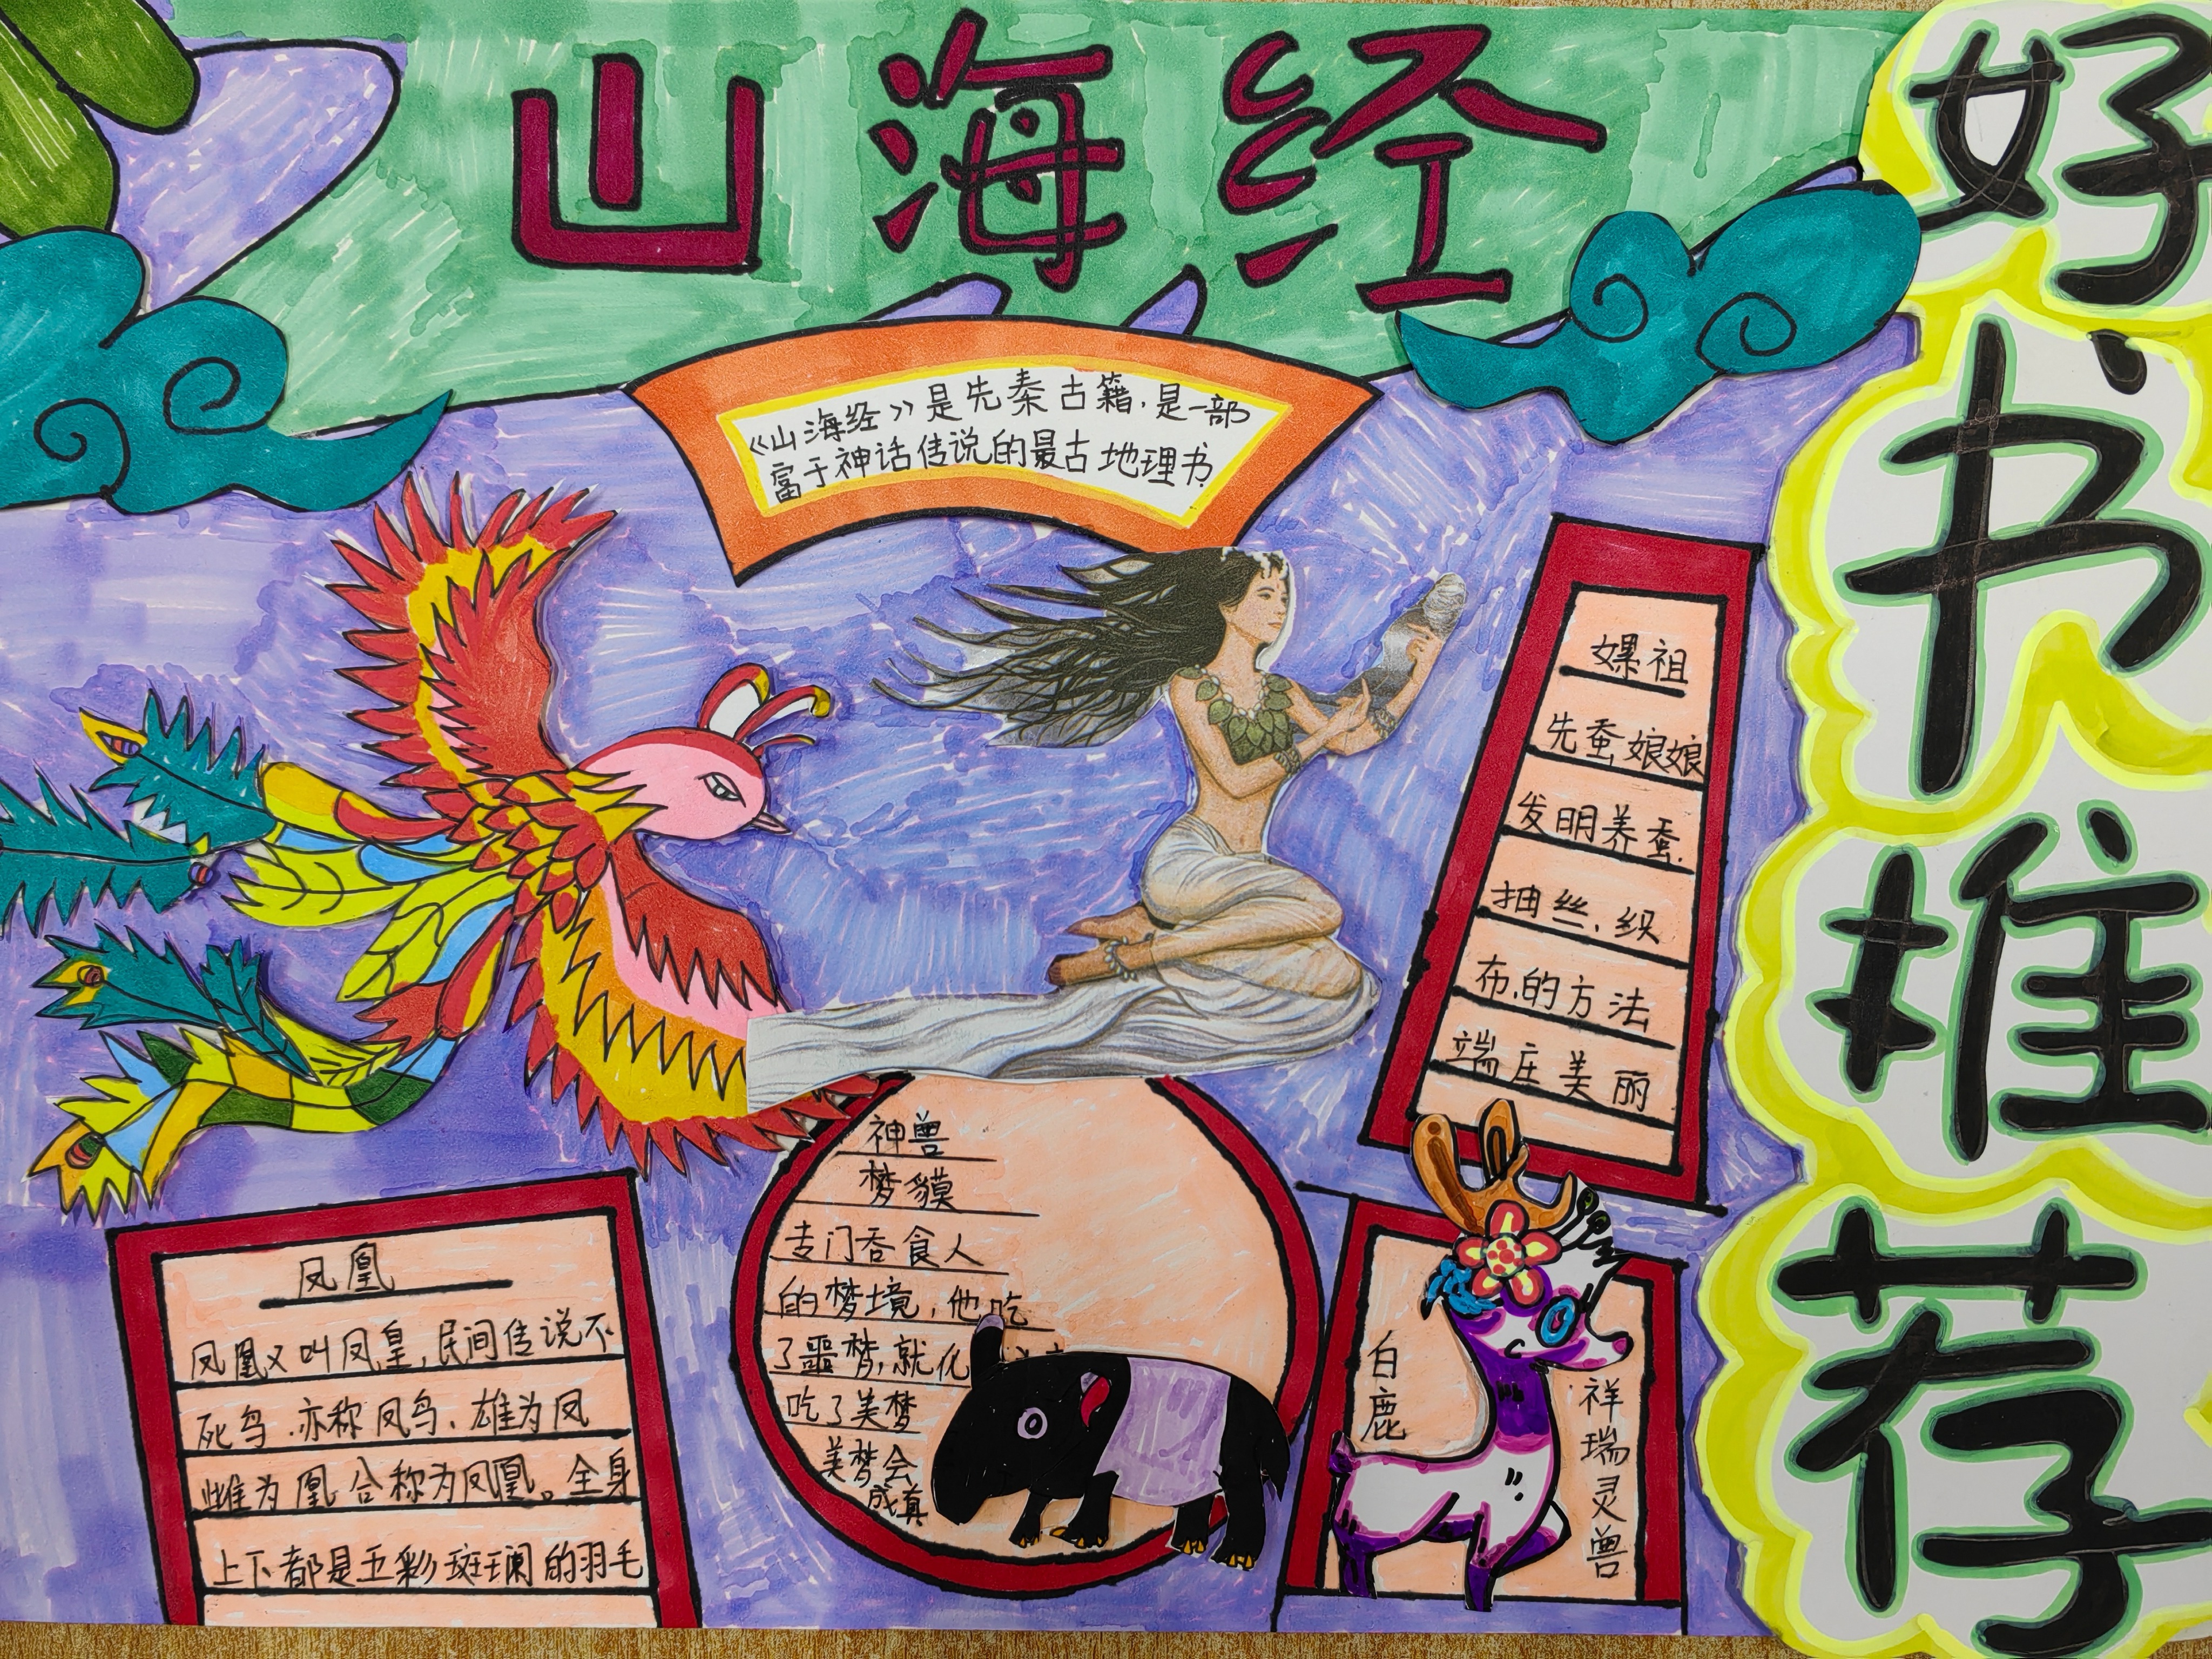 山海经
好书推荐
《山海经》是先秦古籍,是一部
富于神话传说的最古地理书.
嫘祖
先蚕娘娘
发明养蚕.
抽丝.织
布.的方法
端庄美丽
凤凰
凤凰又叫凤皇,民间传说不
死鸟.亦称凤鸟.雄为凤
雌为凰合称为凤凰。全身
上下都是五彩斑斓的羽毛
神兽
梦貘
专门吞食人
的梦境,他吃
了噩梦,就化
吃了美梦
美梦会
成真
白鹿
祥瑞灵兽